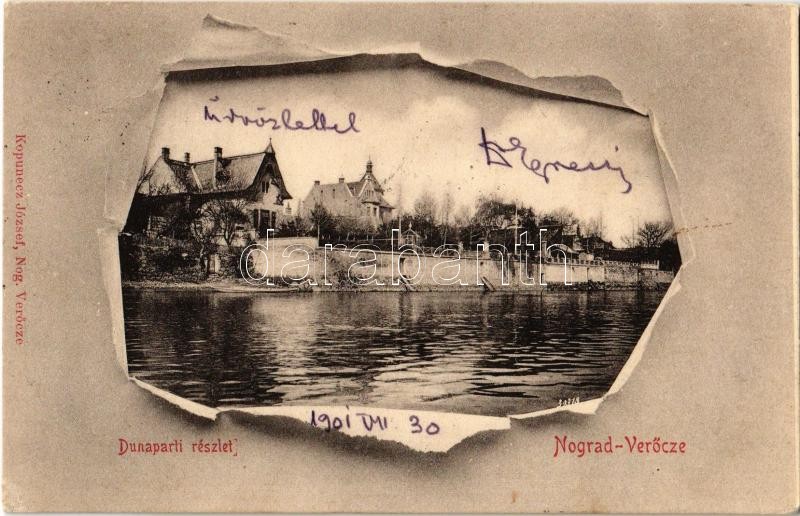 üdvözlettel
Egressi
darabanth
Kopunecz József, Nog. Verőcze
1901 VII 30
Dunaparti részlet
Nograd-Verőcze